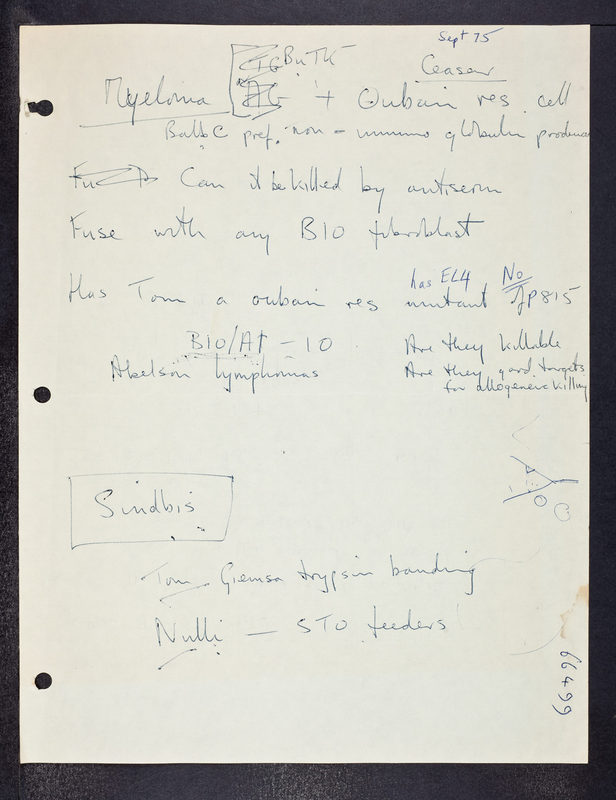 Sept 75
TG BuTK
Ceasar
Myeloma AG + Oubain res. cell
BalbC pref. non-immuno globulin producer
Can it be killed by antiserum
Fuse with any B10 fibroblast
has EL4 No
Has Tom a oubain res mutant of P815
B10/At - 10 Are they killable
Abelson lymphomas Are they good targets
for allogeneic killing
Sindbis
Tom Giemsa trypsin banding
Nulli - STO feeders
66499